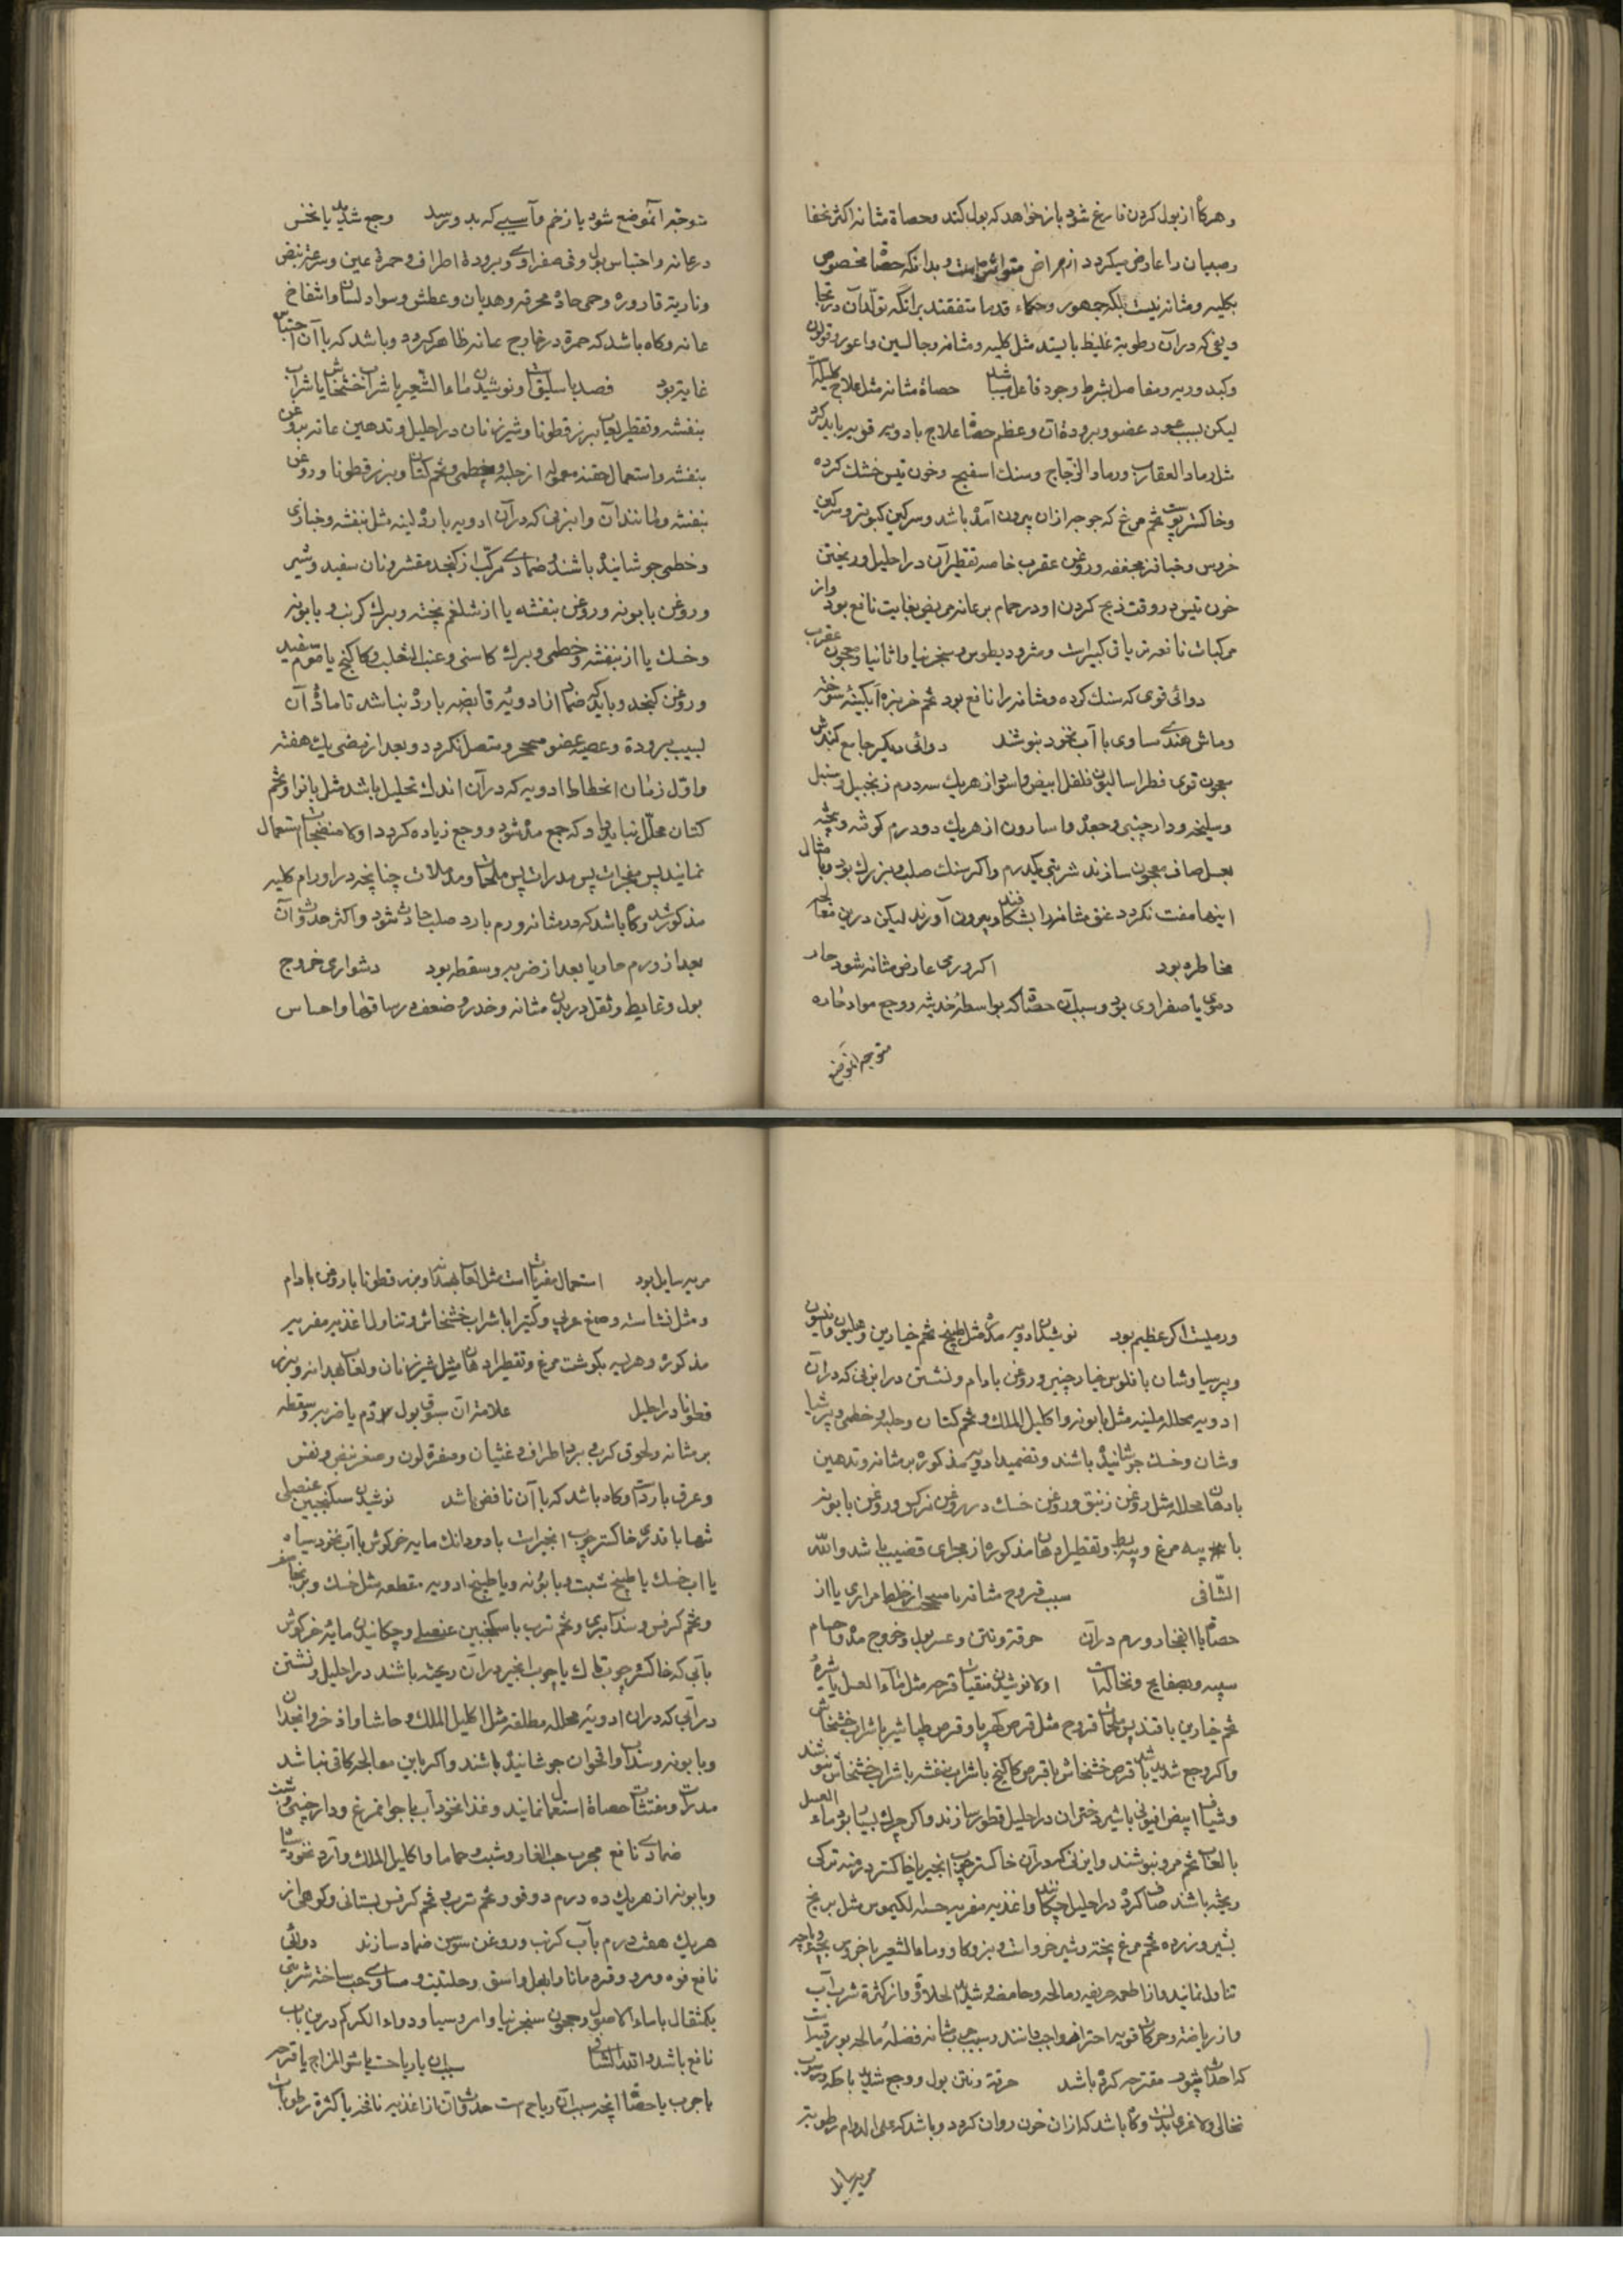 وهرگاه از بول کردن فارغ شود باز خواهد که بول کند وحصاة مثانه اکثر نحفا
وصبیان را عارض میگردد از امراض متوارثه است وبدانکه حصاة مخصوص
بکلیه ومثانه نیست بلکه جمهور وحکماء قدیم متفقند برانکه تولد آن در تجا
ویفی که دران رطوبة غلیظ بایستد مثل کلیه ومثانه وجالسین واعور وقولون
وکبد وریه ومفاصل بشرط وجود فاعل میباشد حصاة مثانه مثل علاج کلیه است
لیکن بسبب بعد عضو وبرودة آن وعظم حصاة علاج بادویه قویه باید کرد
مثل رماد العقارب ورماد الزجاج وسنک اسفنج وخون تیس خشک کرده
وخاکستر پوست تخم مرغ که جوجه ازان بیرون آمده باشد وسرکین کبوتر وسرکین
خروس وخبازی مجففه وروغن عقرب خاصه تقطیر آن در احلیل وریختن
خون تیس در وقت ذبح کردن او در حمام بر عانه مریض بغایت نافع بود واز
مرکبات نافعه تریاق کبیراست ومثرودیطوس وسنجرنیا واثاناسیا ومعجون عقرب
دوائی قوی که سنک کرده ومثانه را نافع بود تخم خربزه آبکینه سوخته
وماش هندی مساوی با آب نخود بنوشند دوائی دیکر جامع کندش
معجون قوی فطراسالیون فلفل ابیض واسود از هریک سه درم زنجبیل وسنبل
وسلیخه ودارچینی وجعده واسارون از هریک دو درم کوفته وبیخته
بعسل صاف معجون سازند شربتی یکدرم واکر سنک صلب وبزرک بود وبامثال
اینها مفتت نکردد عنق مثانه را بشکافند وبیرون آورند لیکن درین معالجه
مخاطره بود اکر ورمی عارض مثانه شود حار
دموی یا صفراوی بود وسبب آن حصاة که بواسطه خدشه ووجع مواد حاره
متوجه آنموضع
متوجه آنموضع شود یا زخم وآسیبی که بدو رسد وجع شدید یا نخس
در عانه واحتباس بول وقی صفراوی وبرودة اطراف وحمرة عین وسرعة نبض
وناریة قاروره وحمی حاده محرقه وهذیان وعطش وسواد لسان وانتفاخ
عانه وکاه باشد که حمرة در خارج عانه ظاهر کردد وباشد که با آن احتباس
غایط بود فصد باسلیق است ونوشیدن ماء الشعیر با شراب خشخاش یا شراب
بنفشه وتقطیر لعاب بزرقطونا وشیر زنان در احلیل وتدهین عانه بروغن
بنفشه واستعمال حقنه معمول از حلبه وخطمی وتخم کتان وبزرقطونا وروغن
بنفشه ومانند آن وابزنی که درآن ادویه بارده لینه مثل بنفشه وخبازی
وخطمی جوشانیده باشند وضمادی مرکب از کنجد مقشر ونان سفید وشیر
وروغن بابونه وروغن بنفشه یا از شلغم پخته وبرک کرنب وبابونه
وخسک یا از بنفشه وخطمی وبرک کاسنی وعنب الثعلب وکاکنج یا موم سفید
وروغن کنجد وباید که ضماد از ادویه قابضه بارده نباشد تا ماده آن
بسبب برودة وعصبیه عضو متحجر ومتصل نکردد وبعد از مضی یک هفته
واول زمان انحطاط ادویه که درآن اندک تحلیل باشد مثل باقلا وتخم
کتان محلل نباید داد که جمع مده شود ووجع زیاده کردد اولا منضجات استعمال
نمایند پس مفجرات پس مدرات پس ملحمات ومدملات چنانچه در اورام کلیه
مذکور شد وکاه باشد که در مثانه ورم بارد صلب حادث شود واکثر حدوث آن
بعد از ورم حار یا بعد از ضربه وسقطه بود دشواری خروج
بول وغایط وثقل در بدن مثانه وخدر وضعف در ساقها واحساس
ورمیست اکر عظیم بود نوشیدن ادویه مدره مثل طبیخ تخم خیارین وهلیون وانیسون
وپرسیاوشان با فلوس خیارچنبر وروغن بادام ونشستن در ابزنی که درآن
ادویه محلله ملینه مثل بابونه واکلیل الملک وتخم کتان وحلبه وخطمی وپرسیا
وشان وخسک جوشانیده باشند وتضمید ادویه مذکوره بر مثانه وتدهین
بادهان محلله مثل روغن زنبق وروغن خسک وروغن نرکس وروغن بابونه
با پیه مرغ وپیه بط وتقطیر ادهان مذکوره از مجرای قضیب باشد والله
الشافی سبب قروح مثانه یا سحج است از خلط مراری یا از
حصاة یا انفجار ورم درآن حرقة ونتن وعسر بول وخروج مده واجسام
سپید وصفایح ونخاله است اولا نوشیدن منقیات قرحه مثل ماء العسل یا شیره
تخم خیارین با قند پس ملحمات قروح مثل قرص کهربا وقرص طباشیر با شراب خشخاش
واکر وجع شدید باشد قرص خشخاش یا قرص کاکنج با شراب بنفشه یا شراب خشخاش بنوشند
وشیاف ابیض افیونی با شیر دختران در احلیل قطور سازند واکر چرک بسیار بود ماء العسل
با لعاب تخم مرو بنوشند وابزنی که درآن خاکستر چوب انجیر یا خاکستر درمنه ترکی
ریخته باشند صاف کرده در احلیل چکانند واغذیه مغریه حسنة الکیموس مثل برنج
بشیر وزرده تخم مرغ پخته وشیر خر وبز وکاو وماء الشعیر با خروس بچه وپاچه
تناول نمایند واز اطعمه حریفه ومالحه وحامضه وشدید الحلاوة واز کثرة شرب آب
واز ریاضة وحرکات قویه احتراز واجب دانند وسبب جرب مثانه فضله مالحه بورقیه است
که احداث بثور متقرحه کرده باشد حرقة ونتن بول ووجع شدید با حکه ورسوب
نخالی ولاغری بدن است وکاه باشد که ازان خون روان کردد وباشد که علی الدوام رطوبتی
مریه سایل
مریه سایل بود استعمال مغریات است مثل لعاب بهدانه وبزرقطونا با روغن بادام
ومثل نشاسته وصمغ عربی وکتیرا با شراب خشخاش وتناول اغذیه مغریه
مذکوره وهریسه بکوشت مرغ وتقطیر ادهان مثل شیر زنان ولعاب بهدانه وبزر
قطونا در احلیل علامة آن سبق بول دم یا ضربه وسقطه
بر مثانه ولحوق کرب وبرد اطراف وغثیان وصفرة لون وصغر نبض ونفس
وعرق بارد است وکاه باشد که با آن نافض باشد نوشیدن سکنجبین عنصلی
تنها با قدری خاکستر چوب انجیراست یا دو دانک مایه خرکوش با آب نخود سیاه
یا آب خسک یا طبیخ شبت وبابونه ویا طبیخ ادویه مقطعه مثل خسک وبرنجاسف
وتخم کرفس وسداب بری وتخم ترب با سکنجبین عنصلی وچکانیدن مایه خرکوش
بآبی که خاکستر چوب تاک یا چوب انجیر درآن ریخته باشند در احلیل ونشستن
در آبی که دران ادویه محلله ملطفه مثل اکلیل الملک وحاشا واذخر وانجدان
وبابونه وسداب واقحوان جوشانیده باشند واکر باین معالجه کافی نباشد
مدرات ومفتتات حصاة استعمال نمایند وغذا نخودآب با جوانمرغ ودارچینی وشبت
ضمادی نافع مجرب حب الغار وشبت وحماما واکلیل الملک وآرد نخود سیاه
وبابونه از هریک ده درم دوقو وتخم ترب وتخم کرفس بستانی وکوهی از
هریک هفت درم بآب کرنب وروغن سوسن ضماد سازند دوائی
نافع فوه ومر وقردمانا وابهل واشق وحلتیت مساوی حب ساخته شربتی
یکمثقال با ماء الاصول ومعجون سنجرنیا وامروسیا ودواء الکرکم درین باب
نافع باشد والله الشافی سبب آن یا ریاحست یا سوء المزاج یا قرحه
یا جرب یا حصاة آنچه سبب آن ریاح است حدوث آن از اغذیه نافخه یا کثرة رطوبات